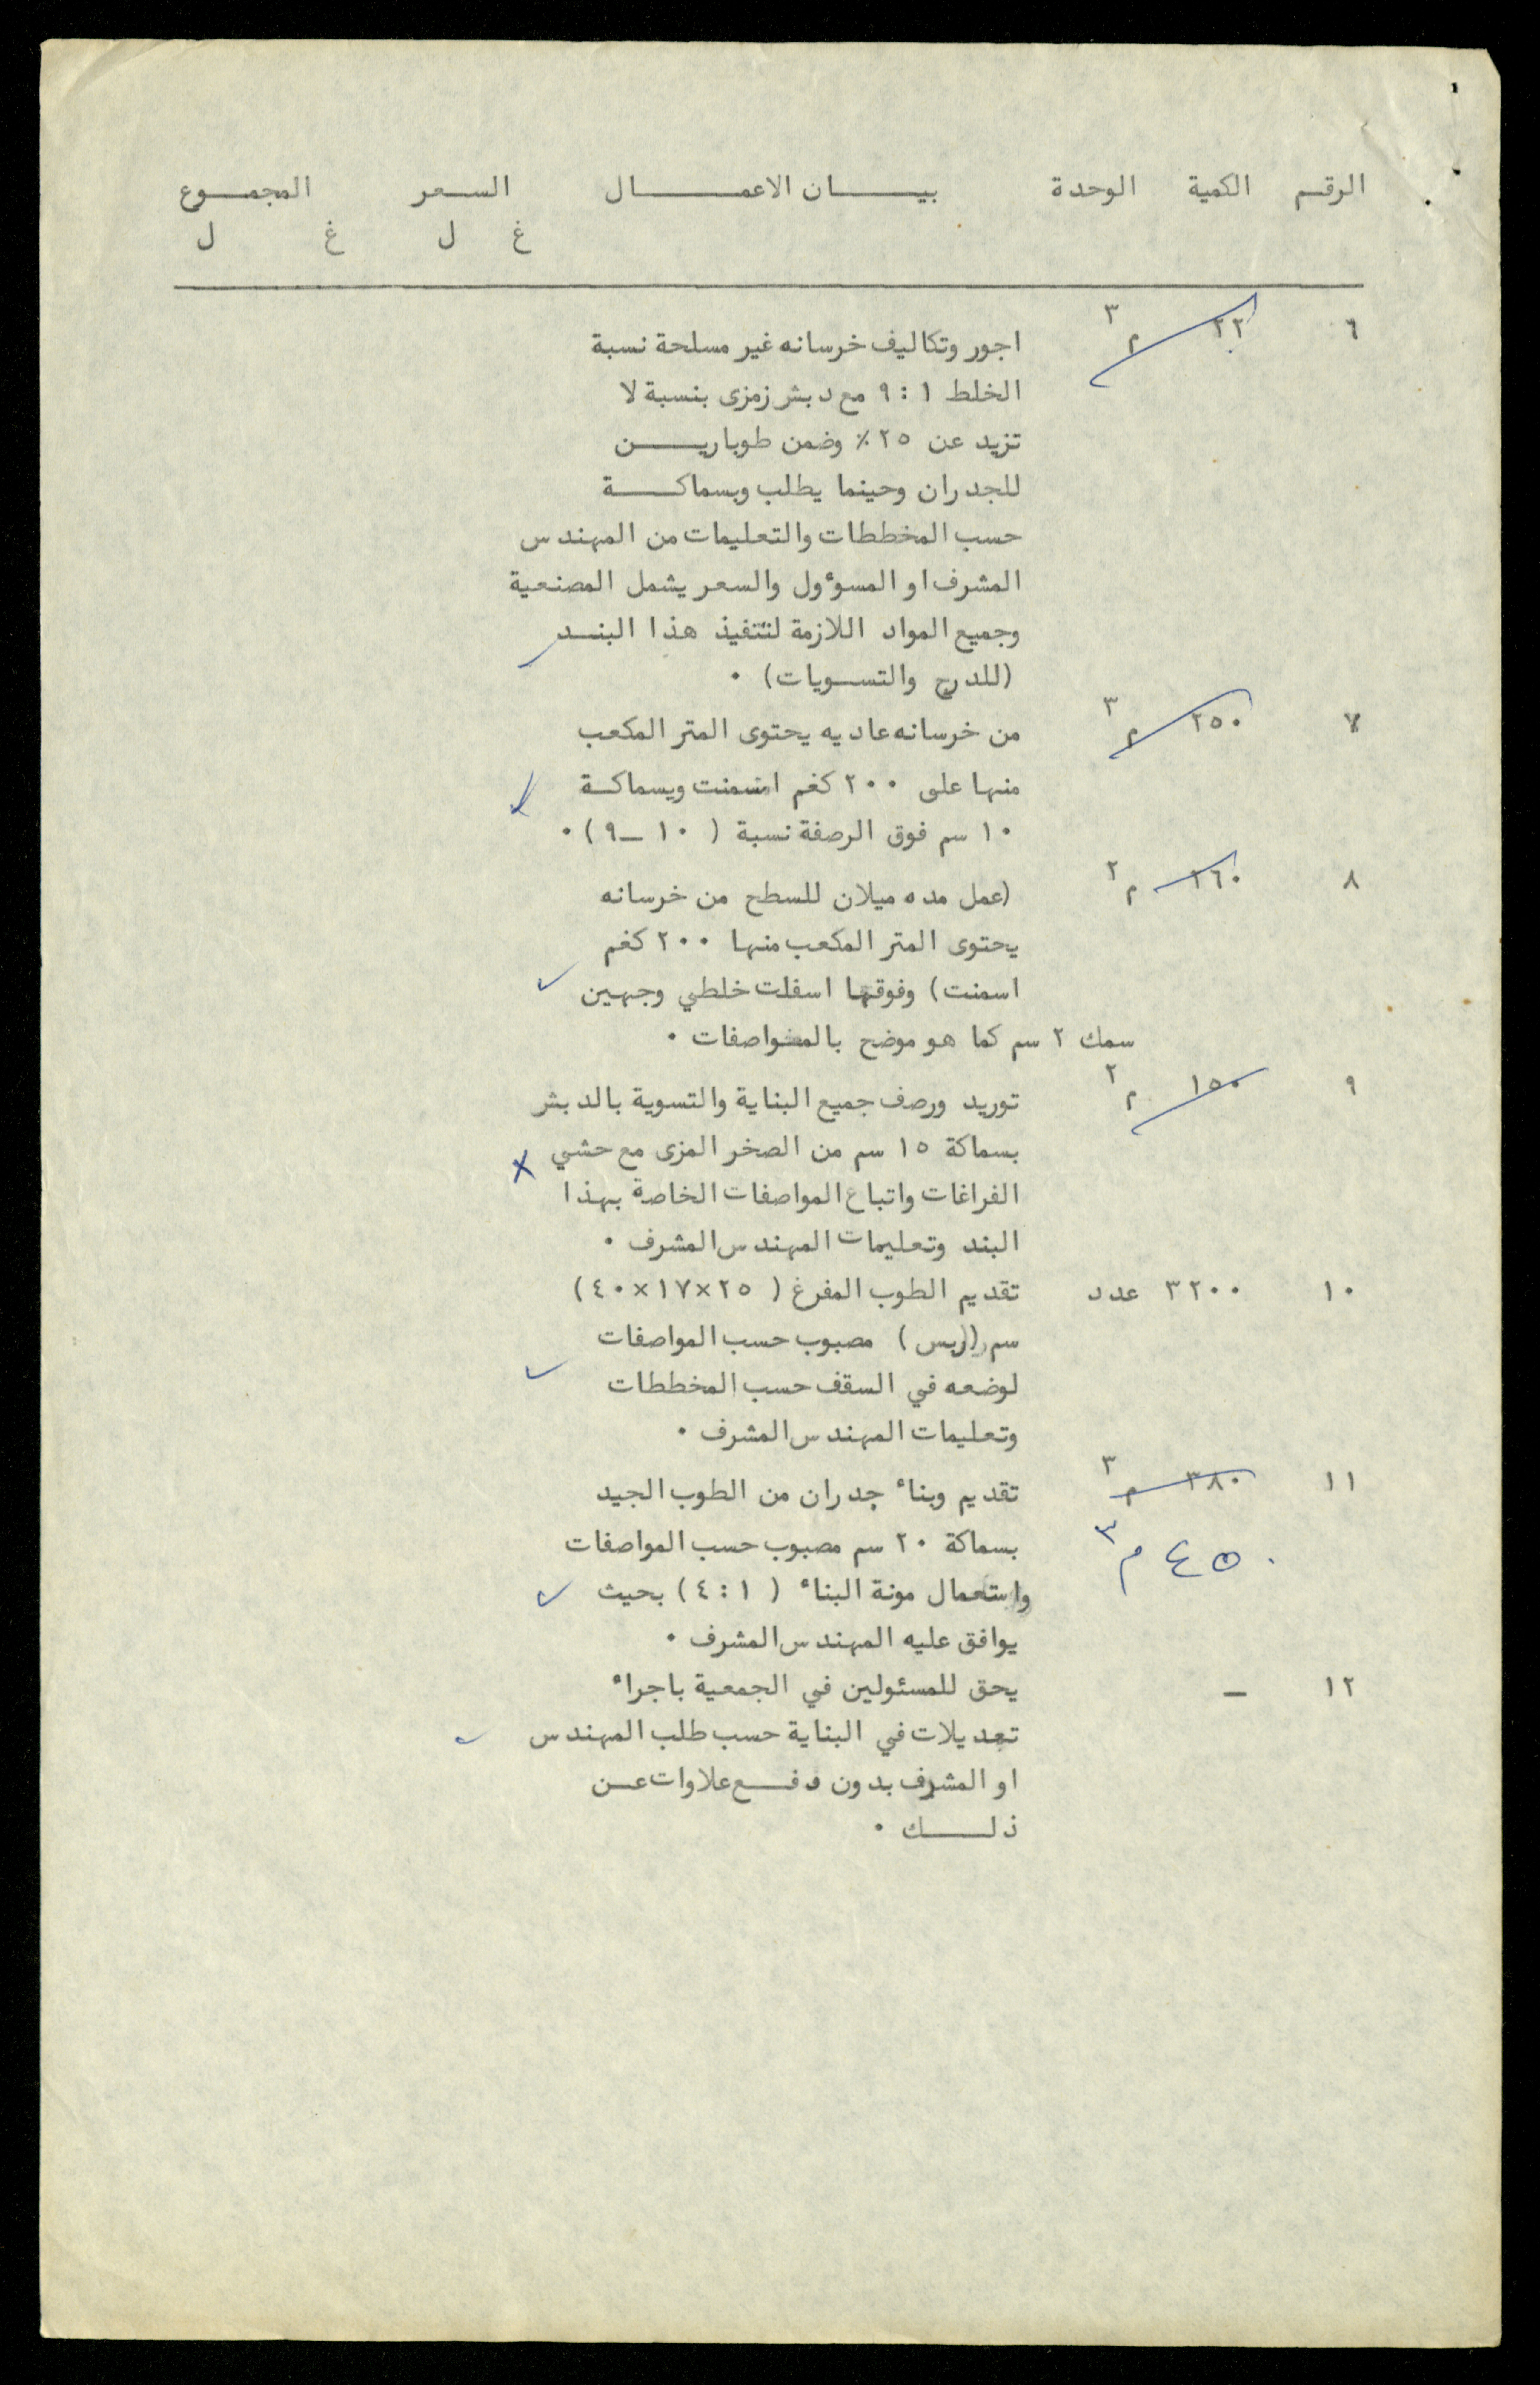 الرقم الكمية الوحدة بيـــــان الاعمـــــال السـعر المجمـوع
غ ل غ ل
٦ ٢٢ م٣
اجور وتكاليف خرسانه غير مسلحة نسبة
الخلط ١ : ٩ مع دبش زمزى بنسبة لا
تزيد عن ٢٥ ٪ وضمن طوباريـــن
للجدران وحينما يطلب وبسماكـــة
حسب المخططات والتعليمات من المهندس
المشرف او المسوٴول والسعر يشمل المصنعية
وجميع المواد اللازمة لتنفيذ هذا البنــد
(للدرج والتسـويات) ٠
٧ ٢٥٠ م٣ من خرسانه عاديه يحتوى المتر المكعب
منها على ٢٠٠ كغم اسمنت وبسماكـة
١٠ سم فوق الرصفة نسبة ( ١٠ ــ ٩ ) ٠
٨ ١٦٠ م٢ (عمل مده ميلان للسطح من خرسانه
يحتوى المتر المكعب منها ٢٠٠ كغم
اسمنت) وفوقها اسفلت خلطي وجهين
سمك ٢ سم كما هو موضح بالمواصفات ٠
٩ ١٥٠ م٢ توريد ورصف جميع البناية والتسوية بالدبش
بسماكة ١٥ سم من الصخر المزى مع حشي
الفراغات واتباع المواصفات الخاصة بهذا
البند وتعليمات المهندس المشرف ٠
١٠ ٣٢٠٠ عدد تقديم الطوب المفرغ ( ٢٥×١٧×٤٠)
سم (ربس) مصبوب حسب المواصفات
لوضعه في السقف حسب المخططات
وتعليمات المهندس المشرف ٠
١١ ٣٨٠ م٣ تقديم وبناء جدران من الطوب الجيد
٤٥٠ م٣ بسماكة ٢٠ سم مصبوب حسب المواصفات
واستعمال مونة البناء ( ١ : ٤ ) بحيث
يوافق عليه المهندس المشرف ٠
١٢ ــ يحق للمسئولين في الجمعية باجراء
تعديلات في البناية حسب طلب المهندس
او المشرف بدون دفــع علاوات عــن
ذلـــك ٠